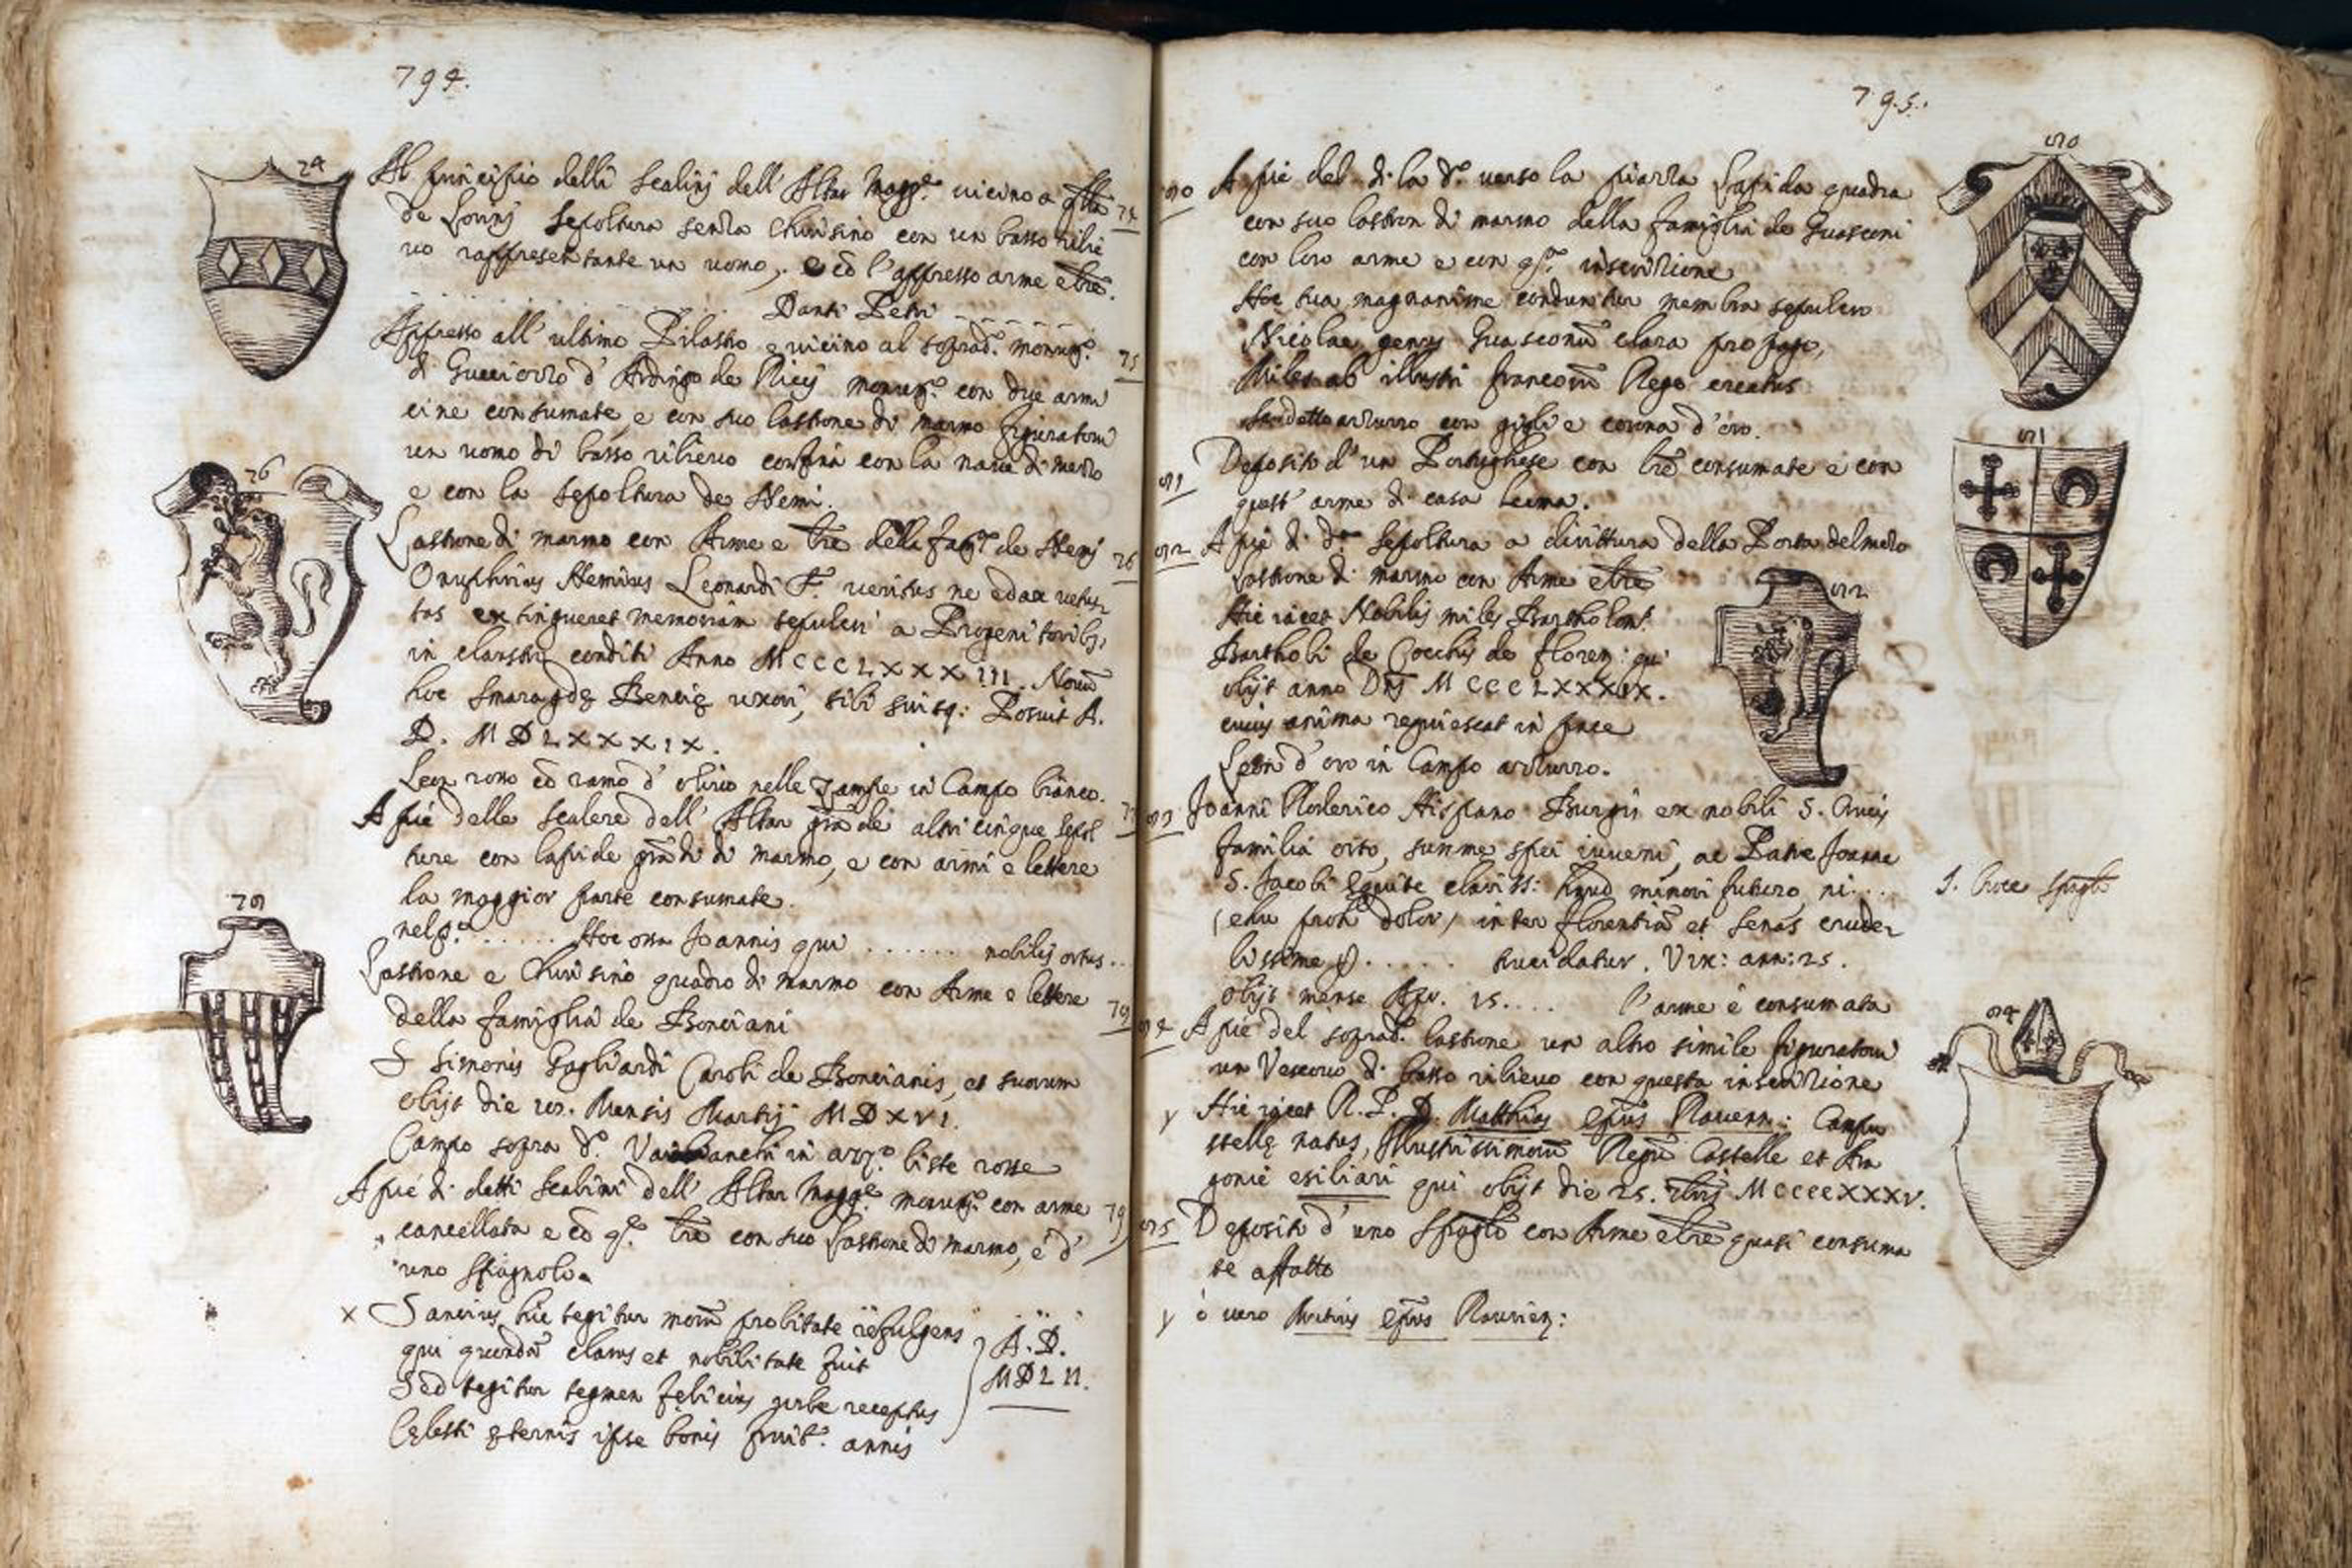 794.
74
Al principio delli Scalini dell' Altar Magg.e vicino a
de Sepoltura senza Chiusino con un basso rilie
vo rappresentante un uomo, e cō l'appresso arme e lrē. 74
Danti Petri
Appresso all' ultimo Pilastro e vicino al soprad.o monum.o
di Gucciozzo d' Ardingo de Ricci monum.o con due armi 75
cine consumate, e con suo lastrone di marmo figuratovi
un uomo di basso rilievo confina con la nave di mezzo
e con la sepoltura de Nemi.
76
Lastrone di marmo con Arme e lrē della fam.a de Nemi 76
Onuphrius Nemius Leonardi F. veritus ne edax vetus
tas extingueret memoriam sepulcri a Progenitorib9,
in claustro conditi Anno MCCCLXXXIII. Novū
hoc Smaragdę Bencię uxori, sibi suisq: Posuit A.
D. MDLXXXIX.
Leon rosso cō ramo d' olivo nelle zampe in Campo bianco.
A piè delle scalere dell' Altar grāde altri cinque sepol
ture con lapide grādi di marmo, e con armi e lettere
la maggior parte consumate.
nel p.o ...... Hoc ossa Joannis qui ...... nobilis ortus..
78
Lastrone e Chiusino quadro di marmo con Arme e lettere
della famiglia de Bonciani 78
S Simonis Gagliardi Caroli de Boncianis, et suorum
obijt die Mensis Martij MDXVI.
Campo sopra d.o bianchi in azz.o liste rosse
A piè di detti scalini dell' Altar Magg.e monum.o con arme
cancellata e cō q.te lrē con suo lastrone di marmo, è d' 79
uno spagnolo.
x Sancius hic tegitur morū probitate refulgens
qui quondā clarus et nobilitate fuit
Sed tegitur tegmen felicius urbe receptus
Cęlesti ęternis ipse bonis fruit.r annis
A. D.
MDLII.
795.
80
80 A piè del di la d.o verso la piazza Lapida quadra
con suo lastron di marmo della famiglia de Guasconi
con loro arme e con q.ta inscrizione
Hoc tua magnanime conduntur membra sepulcro
Nicolae genus Guasconū clara propago,
Miles ab illustri francorū Rege creatus
scudetto azzurro con gigli e corona d'oro.
81
81 Deposito d' un Portughese con lrē consumate e con
quest' arme di casa Lema.
82 A piè di d.a sepoltura a dirittura della Porta del mezzo
Lastrone di marmo con Arme e lrē
82
Hic iacet Nobilis miles Bartholom.
Bartholi de Cocchis de floren: qui
obijt anno Dnī MCCCLXXXIX.
cuius anima requiescat in pace
Leon d' oro in Campo azzurro.
83 Joanni Roderico Hispano Burgis ex nobili S. Crucis
familia orto, summe spei iuveni, ac Patre Joanne
S. Jacobi equite clariss: haud minori futuro, ni...
S. Croce Spagn
(eheu proh dolor) inter florentiā et Senas crude
lissime ..... trucidatur. Vix: ann: 25.
obijt mense Apr. 15.... l'arme è consumata
84
84 A piè del soprad.o lastrone un altro simile figuratovi
un Vescovo di basso rilievo con questa inscrizione
y Hic iacet R. P. D. Matthias epūs Ravenn: Campo
stellę natus, Illustrissimorū Regū Castelle et Ara
gonie esiliari qui obijt die 25. MCCCCXXXV.
85 Deposito d' uno Spagnlo con Arme e lrē quasi consuma
te affatto
y ò vero epūs